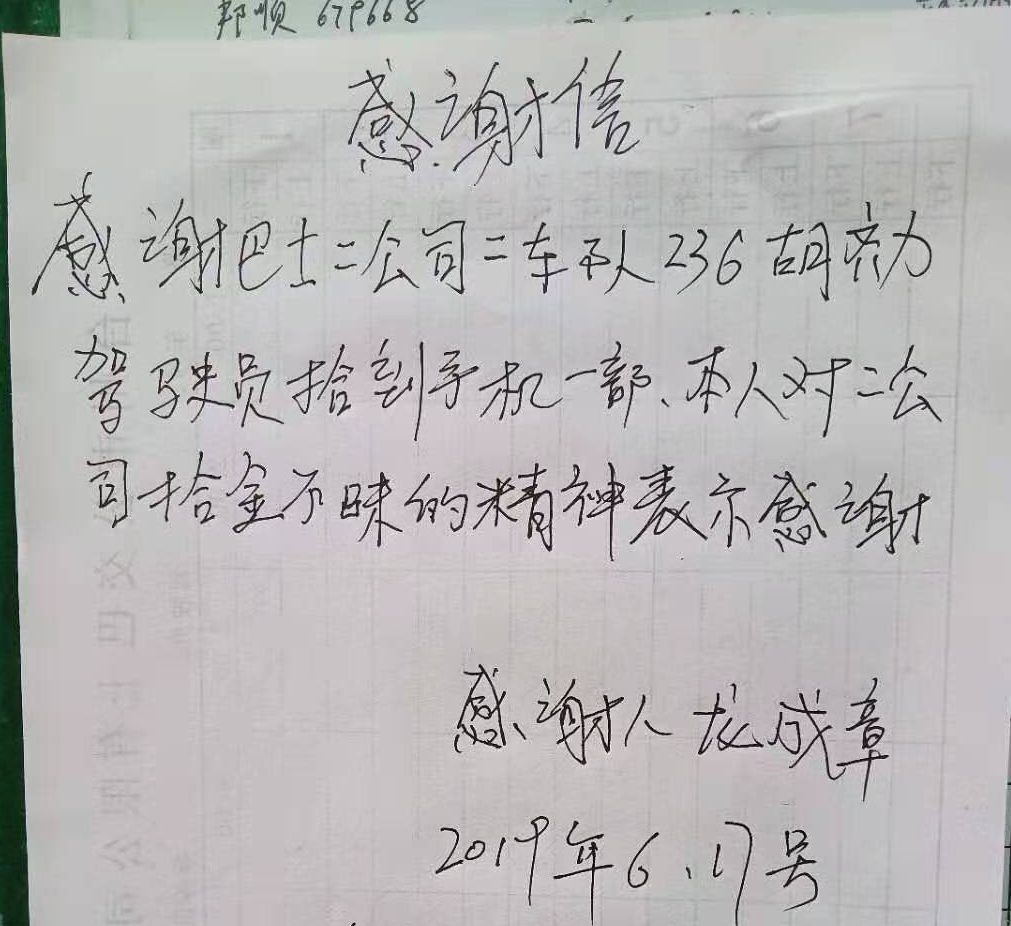 邦顺 679668
感谢信
感谢巴士二公司二车队236胡齐力
驾驶员拾到手机一部、本人对二公
司拾金不昧的精神表示感谢
感谢人 龙成章
2019年6.17号